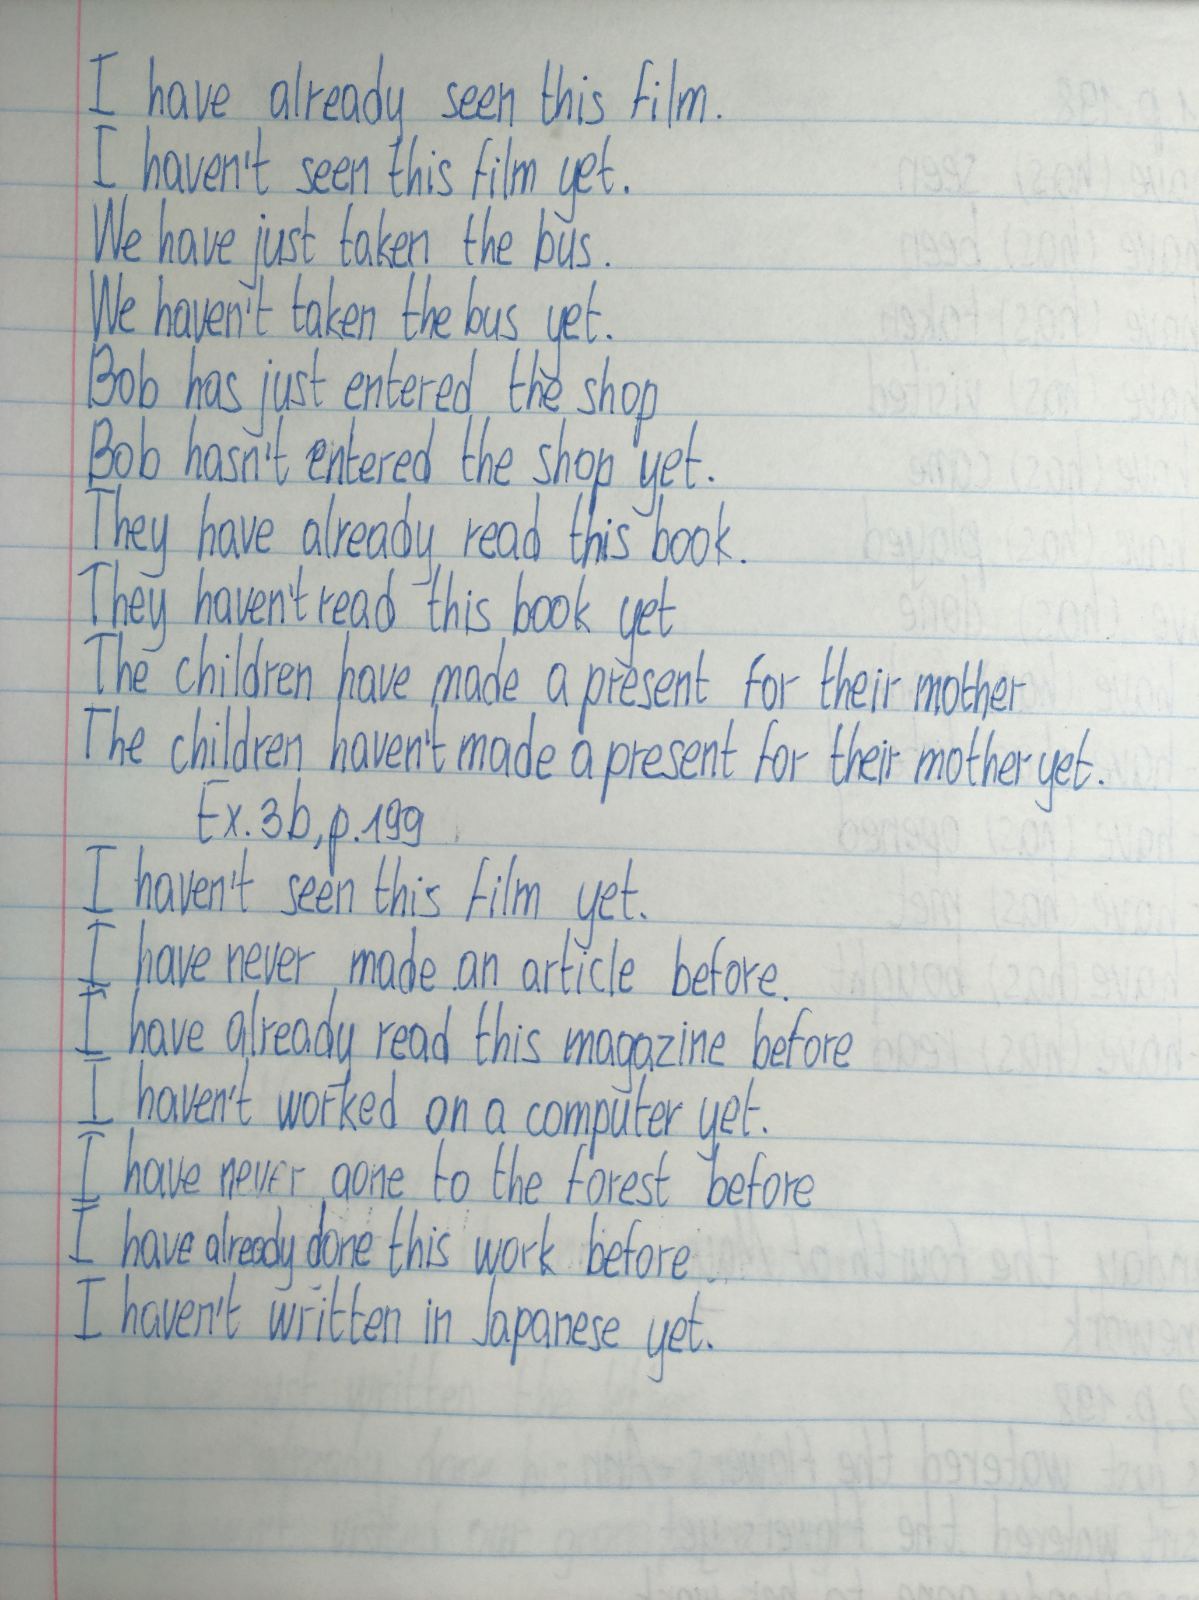 I have already seen this film.
I haven't seen this film yet.
We have just taken the bus.
We haven't taken the bus yet.
Bob has just entered the shop
Bob hasn't entered the shop yet.
They have already read this book.
They haven't read this book yet
The children have made a present for their mother
The children haven't made a present for their mother yet.
Ex. 3b, p. 199
I haven't seen this film yet.
I have never made an article before.
I have already read this magazine before
I haven't worked on a computer yet.
I have never gone to the forest before
I have already done this work before
I haven't written in Japanese yet.